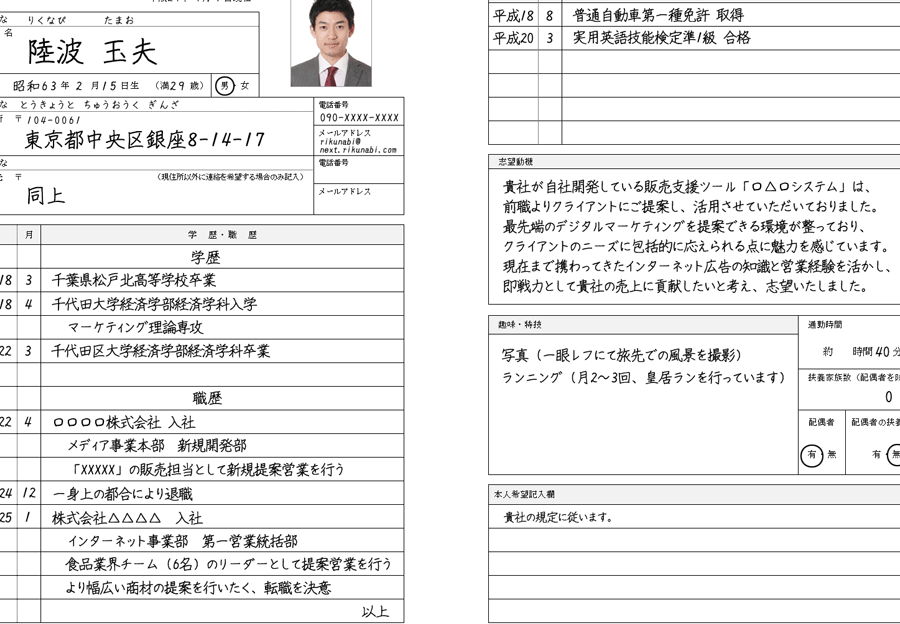 な りくなび たまお
名
陸波 玉夫
昭和63年 2月15日生 (満29歳) 男・女
な とうきょうと ちゅうおうく ぎんざ
〒104-0061
東京都中央区銀座8-14-17
電話番号
090-XXXX-XXXX
メールアドレス
rikunabi@
next.rikunabi.com
な
〒 (現住所以外に連絡を希望する場合のみ記入)
同上
電話番号
メールアドレス
月 学 歴・職 歴
学歴
18 3 千葉県松戸北高等学校卒業
18 4 千代田大学経済学部経済学科入学
マーケティング理論専攻
22 3 千代田区大学経済学部経済学科卒業
職歴
22 4 ロロロロ株式会社 入社
メディア事業本部 新規開発部
「XXXXX」の販売担当として新規提案営業を行う
24 12 一身上の都合により退職
25 1 株式会社△△△△ 入社
インターネット事業部 第一営業統括部
食品業界チーム(6名)のリーダーとして提案営業を行う
より幅広い商材の提案を行いたく、転職を決意
以上
平成18 8 普通自動車第一種免許 取得
平成20 3 実用英語技能検定準1級 合格
志望動機
貴社が自社開発している販売支援ツール「ロ△ロシステム」は、
前職よりクライアントにご提案し、活用させていただいておりました。
最先端のデジタルマーケティングを提案できる環境が整っており、
クライアントのニーズに包括的に応えられる点に魅力を感じています。
現在まで携わってきたインターネット広告の知識と営業経験を活かし、
即戦力として貴社の売上に貢献したいと考え、志望いたしました。
趣味・特技
写真(一眼レフにて旅先での風景を撮影)
ランニング(月2〜3回、皇居ランを行っています)
通勤時間
約 時間40分
扶養家族数(配偶者を
0
配偶者
有・無
配偶者の扶養
有・無
本人希望記入欄
貴社の規定に従います。